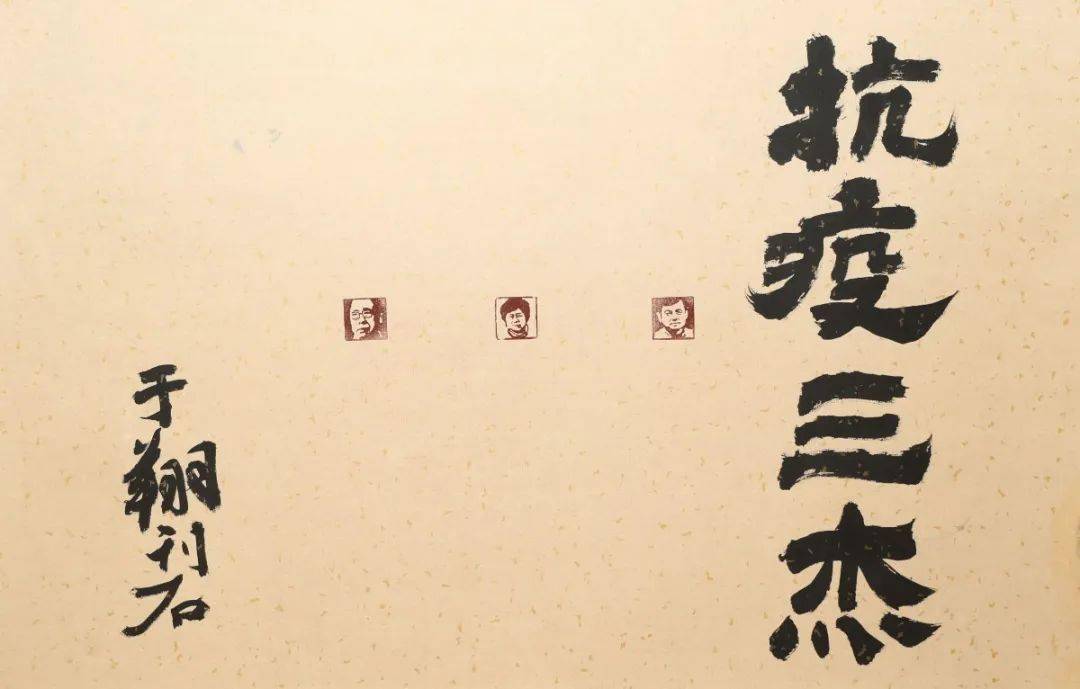 抗疫三杰
于翔刊石